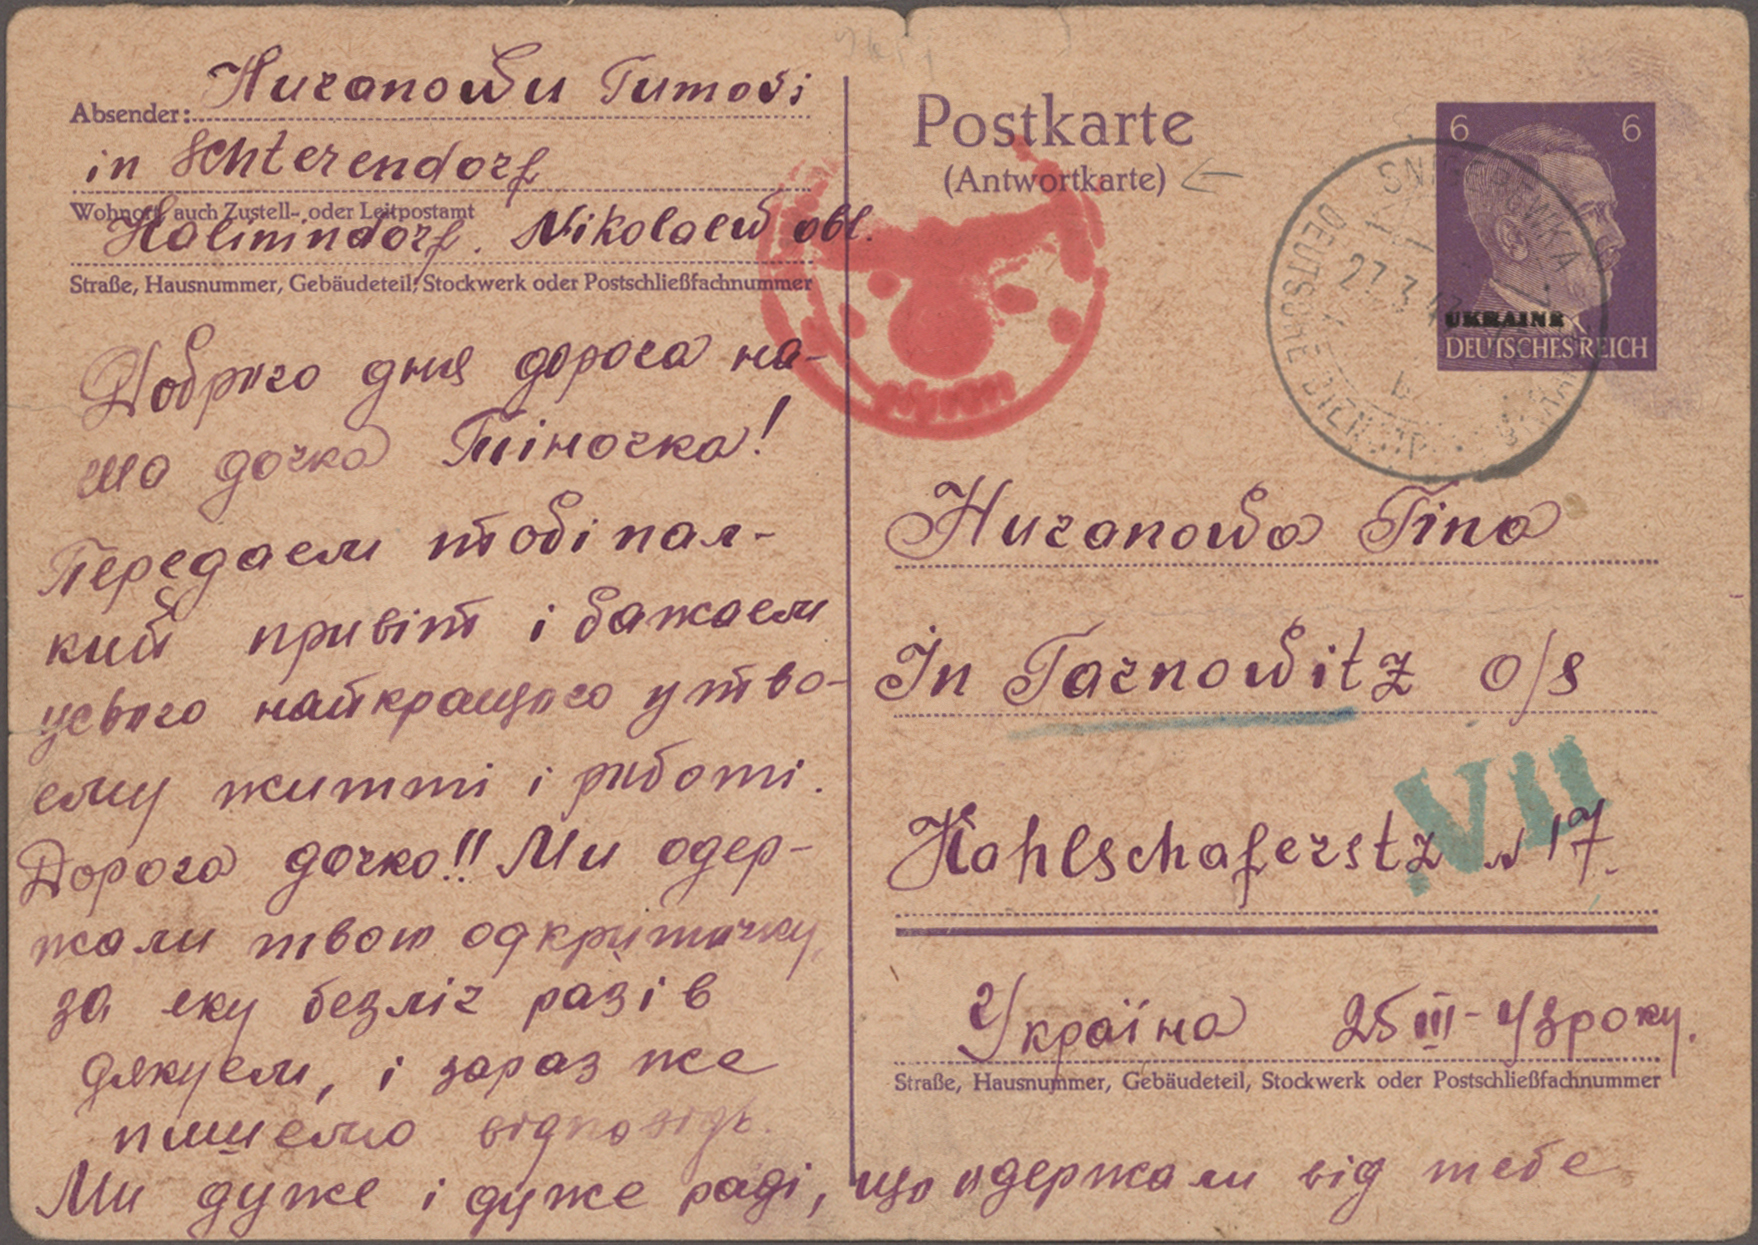 Absender: Huzanowu Tumosi
in Schterendorf
Wohnort, auch Zustell- oder Leitpostamt
Kalinindorf. Nikolaew obl.
Straße, Hausnummer, Gebäudeteil, Stockwerk oder Postschließfachnummer
Доброго дня дорога на-
ша дочка Тіночка!
Передаєм тобі пал-
кий привіт і бажаєм
усього найкращого у тво-
єму житті і роботі.
Дорога дочко!! Ми одер-
жали твою одкриточку,
за яку безліч разів
дякуєм, і зараз же
пишемо відповідь.
Ми дуже і дуже раді, що одержали від тебе
Postkarte
(Antwortkarte)
6 6
UKRAINE
DEUTSCHES REICH
SNIGEREWKA
DEUTSCHE DIENSTPOST UKRAINE
27.3.43
b
Huzanowa Tina
in Tarnowitz O/S
VII
Kahlschaferstz N 17.
Україна 25 III-43 року.
Straße, Hausnummer, Gebäudeteil, Stockwerk oder Postschließfachnummer